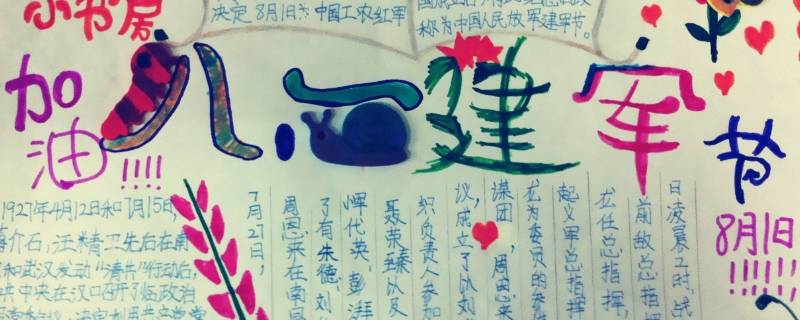 小书房
决定8月1日为中国工农红军
称为中国人民放军建军节。
加油
!!!!
八一建军节
8月1日
!!!!!!
1927年4月12日和7月15日,
蒋介石,汪精卫先后在南
和武汉发动“清共”行动后,
共中央在汉口召开了临政治
7月27日,
周恩来在南昌
了有朱德、刘
恽代英、彭湃
聂荣臻以及
织负责人参加
议,成立了以刘
谋团,周恩来
龙为委员的参
起义军总指挥
龙任总指挥,
前敌总指挥
日凌晨2时,战